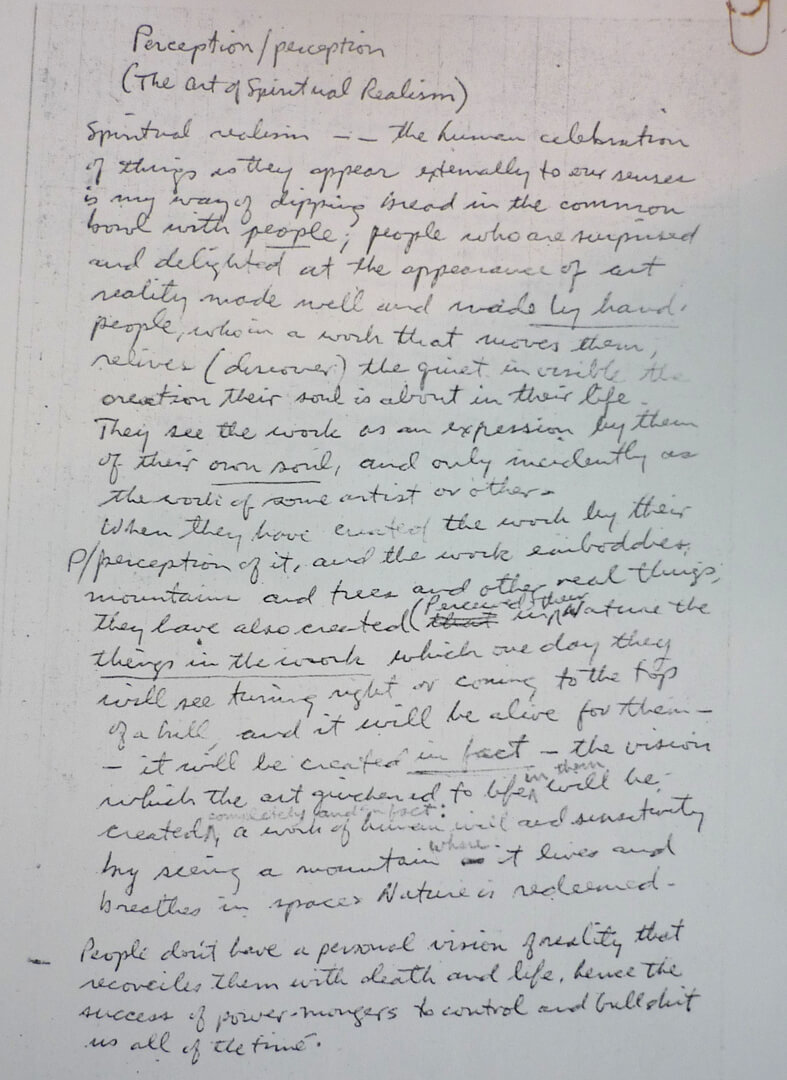 Perception/perception
(The art of Spiritual Realism)
Spiritual realism -- the human celebration
of things as they appear externally to our senses
is my way of dipping bread in the common
bowl with people; people who are surprised
and delighted at the appearance of art
reality made well and made by hand.
people, who in a work that moves them,
relives (discover) the quiet invisible the
creation their soul is about in their life.
They see the work as an expression by them
of their own soul, and only incidently as
the work of some artist or other.
When they have created the work by their
P/perception of it, and the work emboddies
mountains and trees and other real things,
they have also created (Perceived their in Nature the
things in the work which one day they
will see turning right or coming to the top
of a hill, and it will be alive for them -
- it will be created in fact - the vision
which the art quickened to life in them will be
created completely and in fact: a work of human will and sensitivity
by seeing a mountain where it lives and
breathes in space. Nature is redeemed.
- People don't have a personal vision of reality that
reconciles them with death and life, hence the
success of power-mongers to control and bullshit
us all of the time.